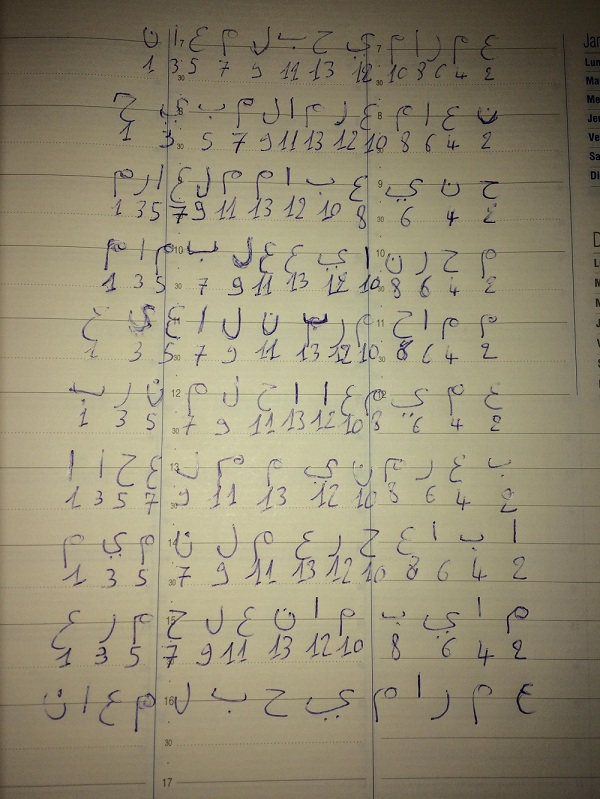 ع م ر ا م ي ح ب ل م ع ا ن
7 7
1 3 5 7 9 11 13 12 10 8 6 4 2
30 30
ن ع ا م ع ر م ا ل م ب ي ح
8 8
1 3 5 7 9 11 13 12 10 8 6 4 2
30 30
ح ن ي ع ب ا م م ل ع ا ر م
9
1 3 5 7 9 11 13 12 10 8 6 4 2
30 30
م ح ر ن ا ي ع ع ل ب م ا م
10 10
1 3 5 7 9 11 13 12 10 8 6 4 2
30 30
م م ا ح م ر ب ن ل ا ع ي ع
11 11
1 3 5 7 9 11 13 12 10 8 6 4 2
30 30
ع م ي م ع ا ا ح ل م ن ر ب
12 12
1 3 5 7 9 11 13 12 10 8 6 4 2
30
ب ع ر م ن ي م م ل ع ح ا ا
13
1 3 5 7 9 11 13 12 10 8 6 4 2
30
ا ب ا ع ح ر ع م ل ن م ي م
14
1 3 5 7 9 11 13 12 10 8 6 4 2
30
م ا ي ب م ا ن ع ل ح م ر ع
1 3 5 7 9 11 13 12 10 8 6 4 2
30
ع م ر ا م ي ح ب ل م ع ا ن
16
30
17